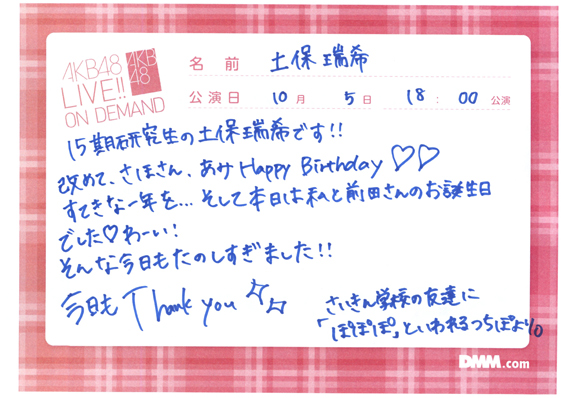 AKB48
LIVE!!
ON DEMAND
AKB
48
名 前 土保瑞希
公演日 10月 5日 18:00 公演
15期研究生の土保瑞希です!!
改めて、さほさん、あみ Happy Birthday♡♡
すてきな一年を...そして本日は私と前田さんのお誕生日
でした♡わーい!
そんな今日もたのしすぎました!!
今日も Thank you ☆☆
さいきん学校の友達に
「ぽぽぽぽ」といわれるつちぽより。
DMM.com